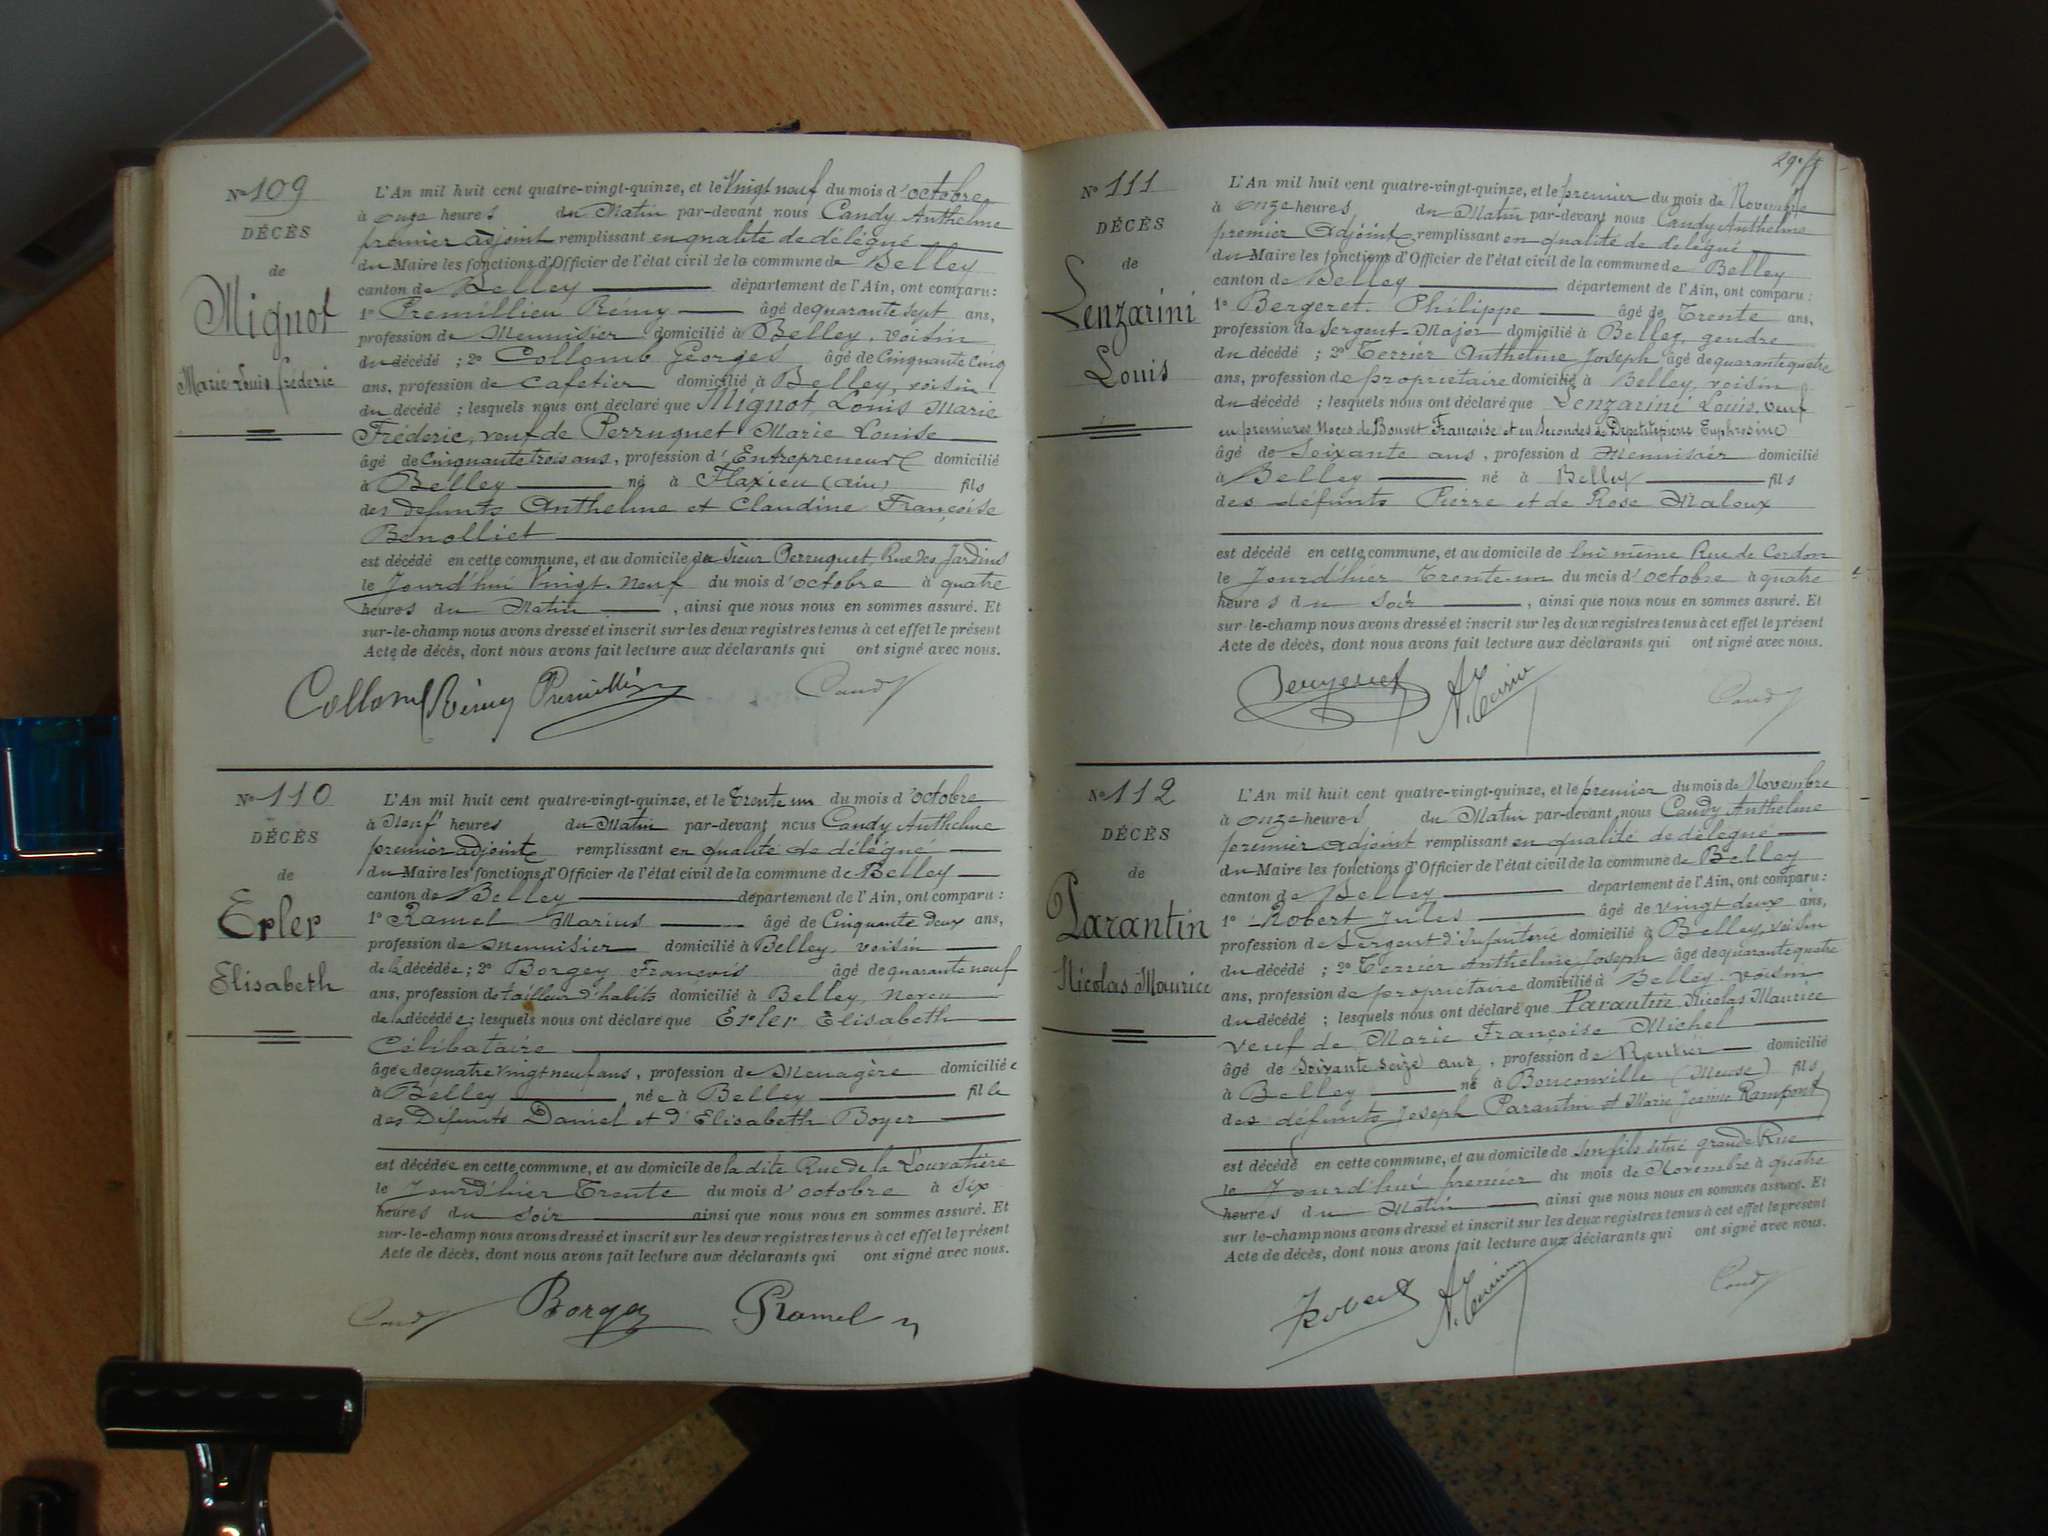 No 109
DÉCÈS
de
Mignot
Marie Louis fréderic
L'An mil huit cent quatre-vingt-quinze, et le Vingt neuf du mois d'octobre
à onze heures du Matin par-devant nous Candy Anthelme
premier adjoint remplissant en qualité de délégué
du Maire les fonctions d'Officier de l'état civil de la commune de Belley
canton de Belley département de l'Ain, ont comparu :
1o Premillieu Rémy âgé de quarante sept ans,
profession de Menuisier domicilié à Belley, voisin
du décédé ; 2o Collomb Georges âgé de Cinquante Cinq
ans, profession de cafetier domicilié à Belley, voisin
du décédé ; lesquels nous ont déclaré que Mignot, Louis Marie
Fréderic, veuf de Perruquet Marie Louise
âgé de Cinquante trois ans, profession d'Entrepreneur domicilié
à Belley né à Flaxieu (ain) fils
des défunts Anthelme et Claudine Françoise
Benolliet
est décédé en cette commune, et au domicile du Sieur Perruquet, Rue des Jardins
le Jourd'hui Vingt-Neuf du mois d'octobre à quatre
heures du Matin , ainsi que nous nous en sommes assuré. Et
sur-le-champ nous avons dressé et inscrit sur les deux registres tenus à cet effet le présent
Acte de décès, dont nous avons fait lecture aux déclarants qui ont signé avec nous.
Collomb Rémy Premillieu Candy
No 110
DÉCÈS
de
Erler
Elisabeth
L'An mil huit cent quatre-vingt-quinze, et le Trente un du mois d'octobre
à Neuf heures du Matin par-devant nous Candy Anthelme
premier adjoint remplissant en qualité de délégué
du Maire les fonctions d'Officier de l'état civil de la commune de Belley
canton de Belley département de l'Ain, ont comparu :
1o Ramel Marius âgé de Cinquante deux ans,
profession de Menuisier domicilié à Belley, voisin
de la décédée ; 2o Borgey François âgé de quarante neuf
ans, profession de tailleur d'habits domicilié à Belley, Neveu
de la décédée ; lesquels nous ont déclaré que Erler Elisabeth
Célibataire
âgée de quatre vingt neuf ans, profession de Menagère domiciliée
à Belley née à Belley fille
des Défunts Daniel et d'Elisabeth Boyer
est décédée en cette commune, et au domicile de la dite Rue de la Louvatière
le Jourd'hier Trente du mois d'octobre à Six
heures du soir ainsi que nous nous en sommes assuré. Et
sur-le-champ nous avons dressé et inscrit sur les deux registres tenus à cet effet le présent
Acte de décès, dont nous avons fait lecture aux déclarants qui ont signé avec nous.
Candy Borgey Ramel
No 111
DÉCÈS
de
Lenzarini
Louis
L'An mil huit cent quatre-vingt-quinze, et le premier du mois de Novembre
à onze heures du Matin par-devant nous Candy Anthelme
premier Adjoint remplissant en qualité de délégué
du Maire les fonctions d'Officier de l'état civil de la commune de Belley
canton de Belley département de l'Ain, ont comparu :
1o Bergeret Philippe âgé de Trente ans,
profession de Sergent-Major domicilié à Belley, gendre
du décédé ; 2o Terrier Anthelme Joseph âgé de quarante quatre
ans, profession de propriétaire domicilié à Belley, voisin
du décédé ; lesquels nous ont déclaré que Lenzarini Louis, veuf
en premieres Noces de Bouvet Françoise et en Secondes de Depetitpierre Euphrosine
âgé de Soixante ans, profession d Menuisier domicilié
à Belley né à Belley fils
des défunts Pierre et de Rose Maloux
est décédé en cette commune, et au domicile de lui même Rue de Cordon
le Jourd'hier Trente-un du mois d'octobre à quatre
heures du soir , ainsi que nous nous en sommes assuré. Et
sur-le-champ nous avons dressé et inscrit sur les deux registres tenus à cet effet le présent
Acte de décès, dont nous avons fait lecture aux déclarants qui ont signé avec nous.
Bergeret A. Terrier Candy
No 112
DÉCÈS
de
Parantin
Nicolas Maurice
L'An mil huit cent quatre-vingt-quinze, et le premier du mois de Novembre
à onze heures du Matin par-devant nous Candy Anthelme
premier Adjoint remplissant en qualité de délégué
du Maire les fonctions d'Officier de l'état civil de la commune de Belley
canton de Belley département de l'Ain, ont comparu :
1o Robert Jules âgé de vingt deux ans,
profession de Sergent d'Infanterie domicilié à Belley, voisin
du décédé ; 2o Terrier Anthelme Joseph âgé de quarante quatre
ans, profession de propriétaire domicilié à Belley, voisin
du décédé ; lesquels nous ont déclaré que Parantin Nicolas Maurice
veuf de Marie Françoise Michel
âgé de Soixante seize ans, profession de Rentier domicilié
à Belley né à Bouconville (Meuse) fils
des défunts Joseph Parantin et Marie Jeanne Rampont
est décédé en cette commune, et au domicile de son fils situé grande Rue
le Jourd'hui premier du mois de Novembre à quatre
heures du Matin ainsi que nous nous en sommes assuré. Et
sur le-champ nous avons dressé et inscrit sur les deux registres tenus à cet effet le présent
Acte de décès, dont nous avons fait lecture aux déclarants qui ont signé avec nous.
Robert A. Terrier Candy